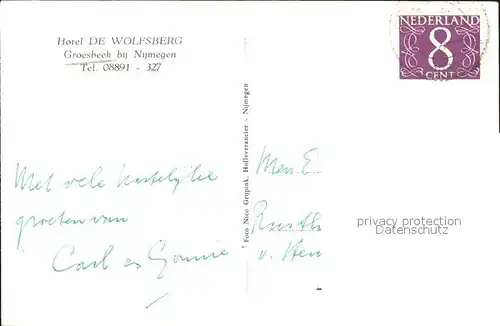 Hotel DE WOLFSBERG
Groesbeek bij Nijmegen
Tel. 08891 - 327
NEDERLAND
8
CENT
Foto Nico Grijpink, Hofleverancier - Nijmegen
Met vele hartelijke
groeten van
Carl en
Men E
v.
privacy protection
Datenschutz